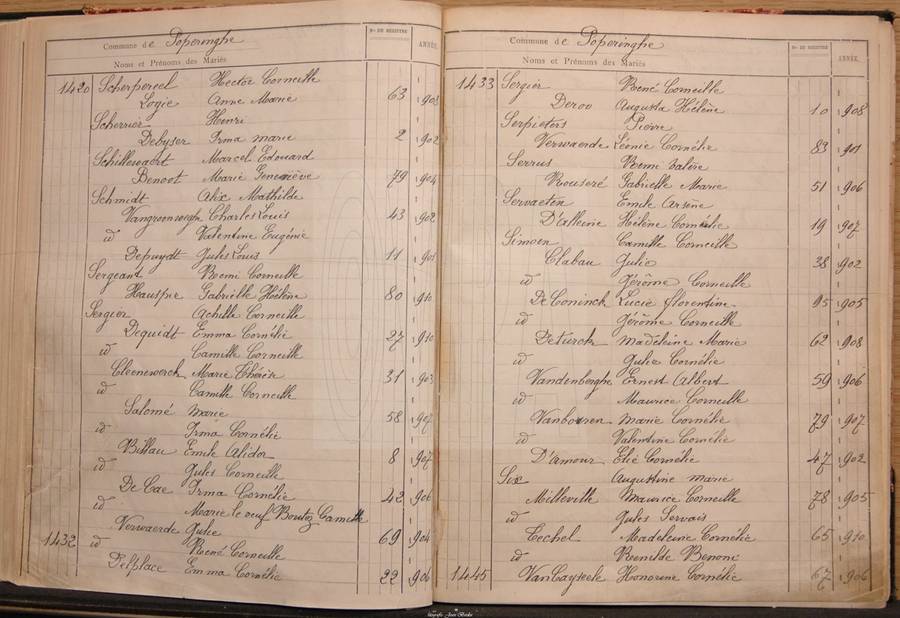 Commune de Poperinghe
Noms et Prénoms des Mariés
Nº DU REGISTRE
ANNÉE
1420 Scherpereel Hector Corneille
Logie Anne Marie 63 1903
Scherrier Henri
Debyser Irma marie 2 1902
Schillewaert Marcel Edouard
Benoot Marie Geneviève 79 1904
Schmidt Alix Mathilde
Charles Louis 43 1902
id Valentine Eugénie
Depuydt Jules Louis 11 1901
Sergeant Remi Corneille
Hauspie Gabrielle Hélène 80 1910
Sergier Achille Corneille
Dequidt Emma Cornélie 27 1910
id Camille Corneille
Cleenewerck Marie Thérèse 31 1903
id Camille Corneille
Salomé Marie 58 1907
id Irma Cornélie
Billau Emile Alidor 8 1907
id Jules Corneille
De Cae Irma Cornélie 42 1906
id Marie Camille
Verwaerde Julie 69 1904
1432 id René Corneille
Delplace Emma Cornélie 22 1906
Commune de Poperinghe
Noms et Prénoms des Mariés
Nº DU REGISTRE
ANNÉE
1433 Sergier René Corneille
Deroo Augusta Hélène 10 1908
Serpieters Pierre
Verwaerde Léonie Cornélie 83 1901
Serrus Remi Valère
Rouseré Gabrielle Marie 51 1906
Servaeten Emile Arsène
D'alleine Hélène Cornélie 19 1907
Simoen Camille Corneille
Clabau Julie 38 1902
id Jérôme Corneille
De Coninck Lucie florentine 95 1905
id Jérôme Corneille
Deturck Madeleine Marie 62 1908
id Julie Cornélie
Vandenberghe Ernest Albert 59 1906
id Maurice Corneille
Vanbouren Marie Cornélie 79 1907
id Valentine Cornélie
D'Amour Elie Cornélie 47 1902
Six Augustine marie
Milleville Maurice Corneille 78 1905
id Jules Servais
Techel Madeleine Cornélie 65 1910
id Renilde Benoni
1445 VanCayseele Honorine Cornélie 67 1906